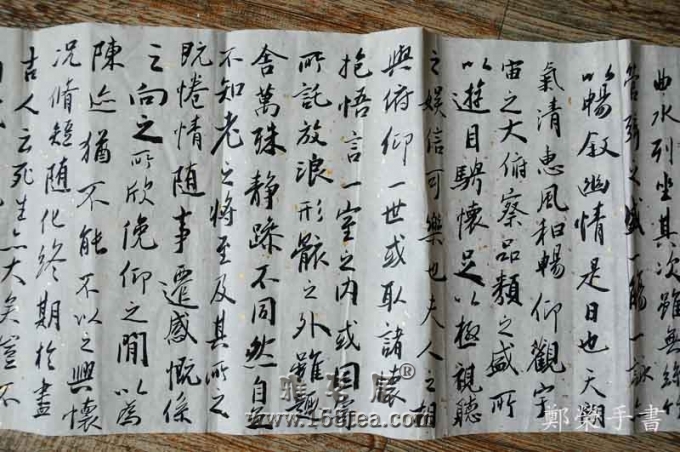 曲水列坐其次雖無絲竹
管弦之盛一觴一詠
以暢敘幽情是日也天朗
氣清惠風和暢仰觀宇
宙之大俯察品類之盛所
以遊目騁懷足以極視聽
之娛信可樂也夫人之相
與俯仰一世或取諸懷
抱悟言一室之内或因寄
所託放浪形骸之外雖趣
舍萬殊静躁不同然自
不知老之將至及其所之
既惓情隨事遷感慨係
之向之所欣俛仰之間以為
陳迹猶不能不以之興懷
況脩短隨化終期於盡
古人云死生亦大矣豈不
www.168tea.com
鄭榮手書